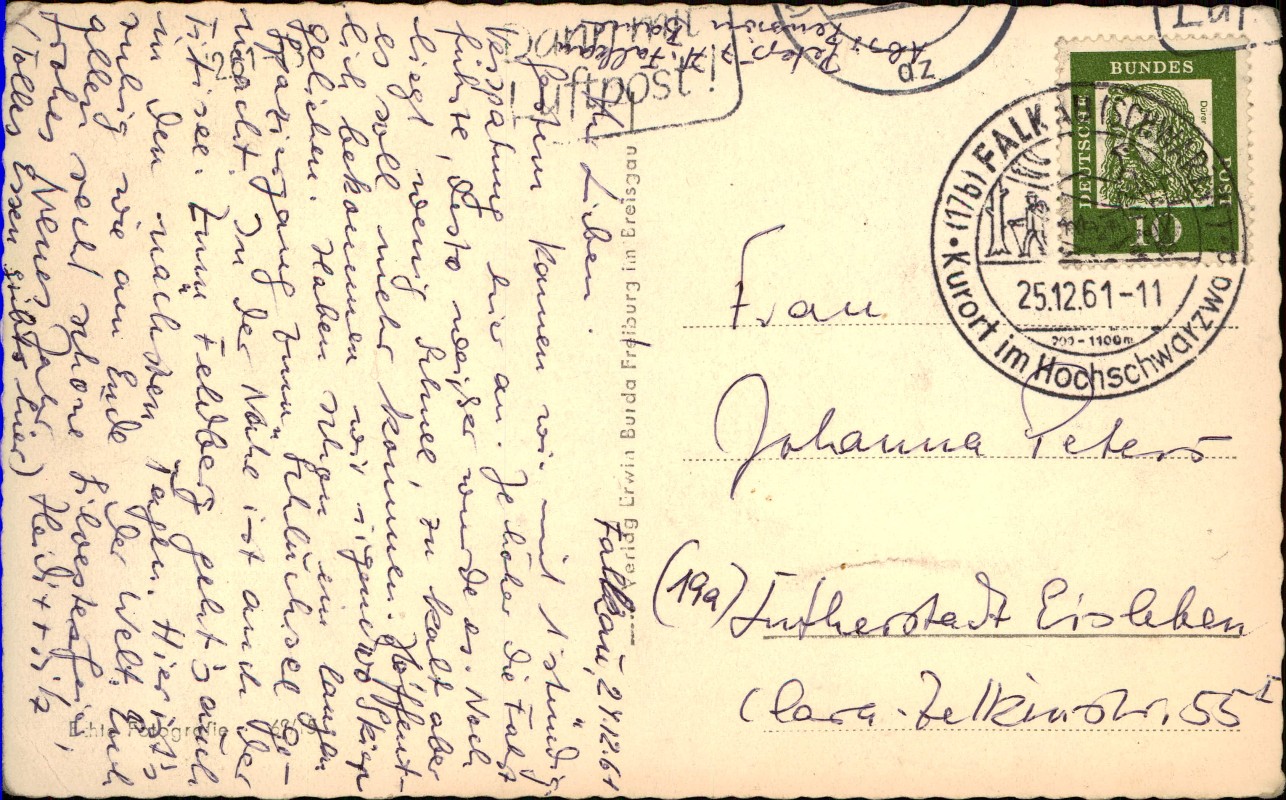 Abs: Peters z. Zt. Falkau
Pension
Falkau, 24.12.61
Ihr Lieben!
Gestern kamen wir mit 1 stündig.
Verspätung hier an. Je höher die Fahrt
führte, desto weißer wurde es. Noch
liegt wenig Schnee zu kalt aber
es soll mehr kommen. Hoffent-
lich bekommen wir irgendwo Skier
geliehen. Haben schon ein langen
Spaziergang zum Schluchsee ge-
macht. In der Nähe ist auch der
Titisee. Zum Feldberg geht's auch
in den nächsten Tagen. Hier ist's
ruhig wie am Ende der Welt. Euch
allen recht schöne Silvesterfeier,
frohes Neues Jahr Heidi +
(Tolles Essen gibts hier)
Echte Fotografie
Verlag Erwin Burda Freiburg im Breisgau
DEUTSCHE BUNDESPOST
Dürer
10
(17b) FALKAU (SCHWARZWALD)
25.12.61-11
700-1100m
Kurort im Hochschwarzwald
Frau
Johanna Peters
(19a) Lutherstadt Eisleben
Clara-Zetkinstr. 55 I